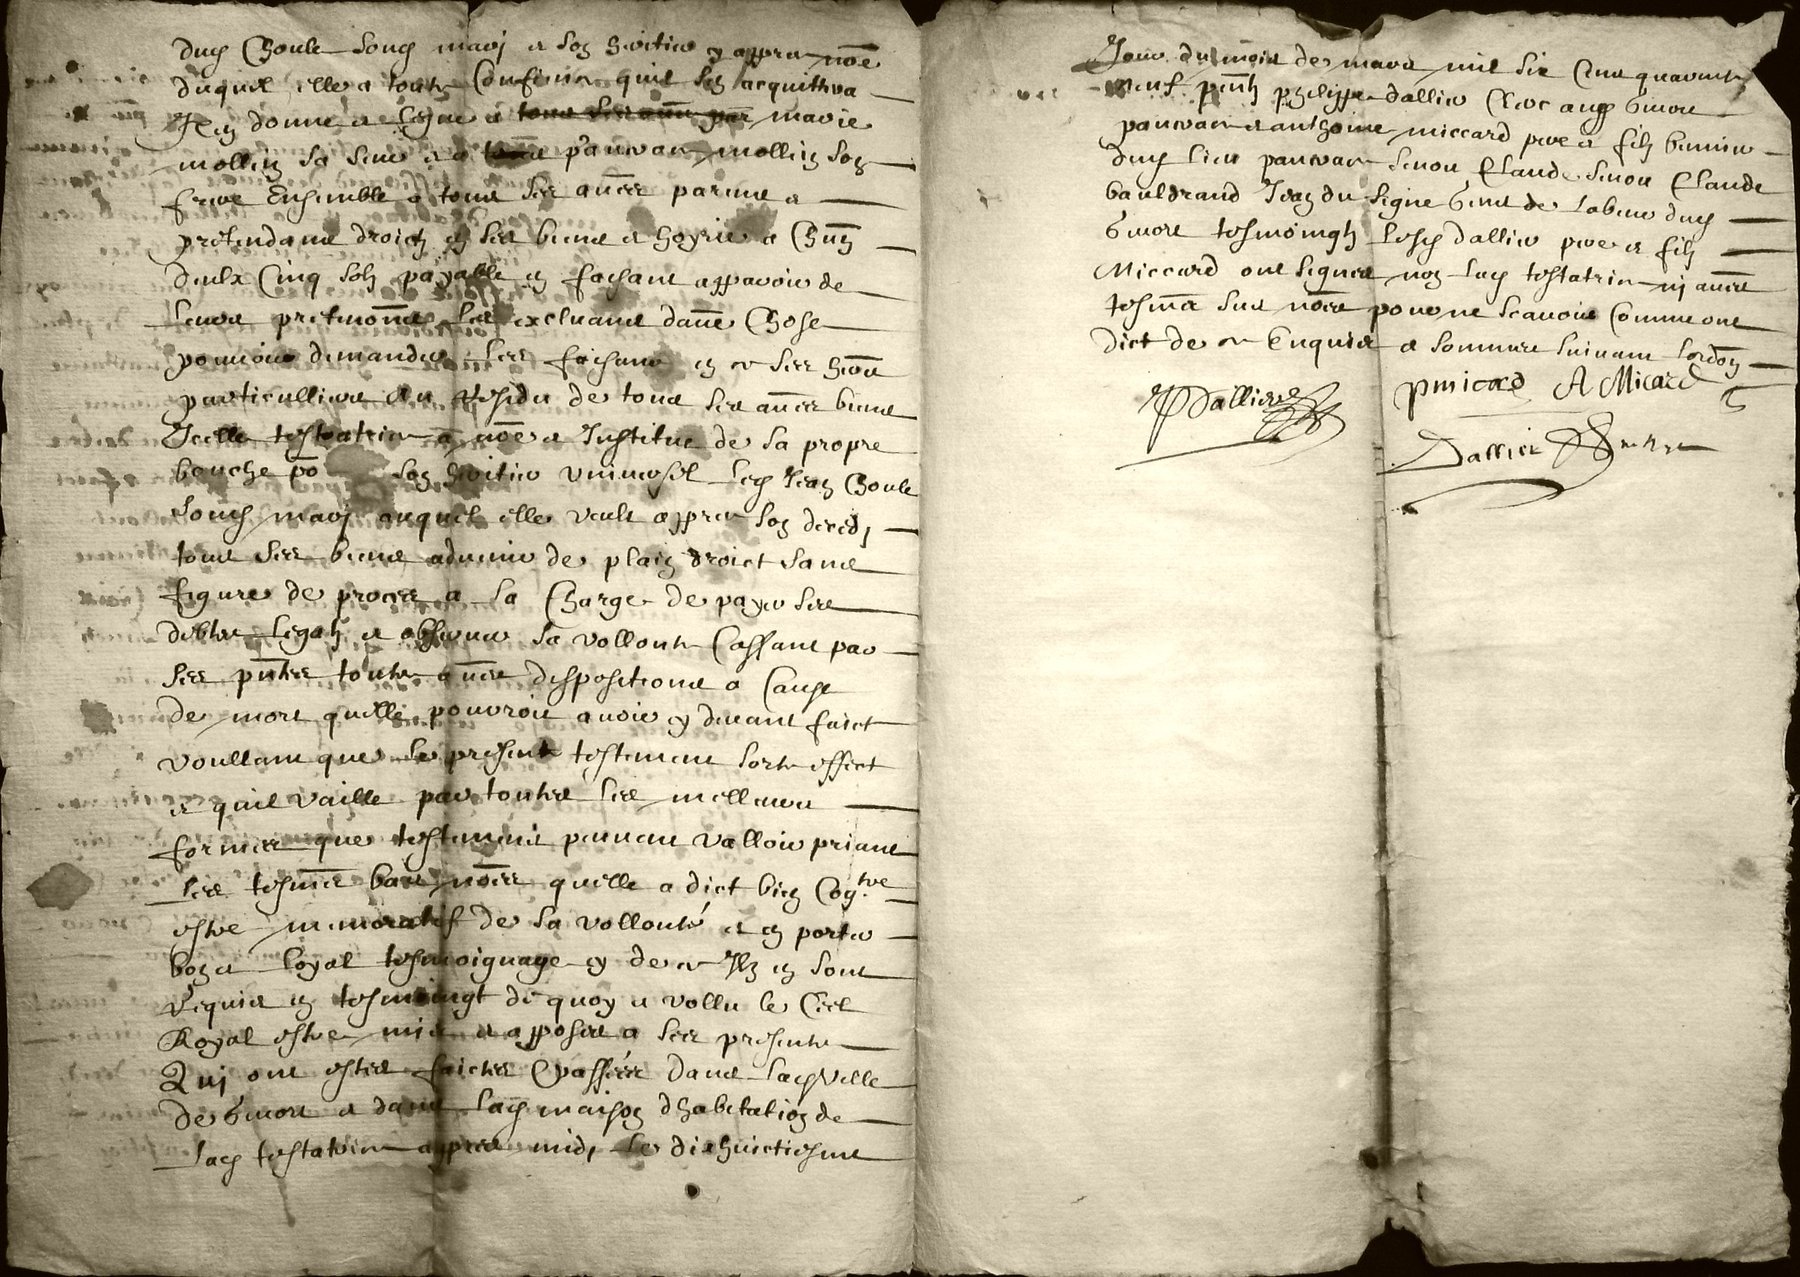 dud Choule sond mary et son heritier cy appres nomé
duquel elle a toute confience quil sen acquittera
Item donne et legue a tous ses aues par marie
mollin sa seur et a mollin son
frere Ensemble a tous ses autres parens et
pretendans droictz en ses biens et hoyrie a chun
deulx Cinq solz payable en faisant apparoir de
leurs les excluant daue Chose
pouvoir demander les faisant en ce ses heors
particulliers Au Residu de tous ses autres biens
Icelle testatrice a nomé et Institue de sa propre
bouche po son heritier universel led Jean Choule
sond mary auquel elle veult appres son deceds
tous ses biens advenir de plain droict sans
figure de proces a la Charge de payer ses
debtes legatz et observer sa vollonte Cassant par
ses pntes toutes autres dispositions a Cause
de mort quelle pourroit avoir cy devant faict
voullant que le present testament sorte effect
et quil vaille par toutes les melleures
formes que testament peuvent valloir priant
les tesmoins bas nomes quelle a dict bien Cogtre
estre memoratif de sa vollonté et en porter
bon et loyal tesmoignage et de ce Ilz en sont
requis en tesmoingt de quoy a vollu le Ceel
Royal estre mis et apposer a ses presentes
Qui ont estes faictes & passées dans lad Ville
de et dans lad maison dhabitation de
Lad testatrice appres midy le dixhuictiesme
Jour du mois de mars mil six Cens quarante
neuf pntz philippe dallier Clerc aud
et anthoine miccard pere et filz
dud lieu Claude Claude
bauldrand Jean du signe de labeur dud
tesmoingtz lesd dallier pere et filz
Miccard ont signes non lad testatrice ny autres
tesmoins sus nomes pour ne scavoir Comme ont
dict de ce Enquis et sommes suivant lordon
Dallier pmicard A Micard
Dallier